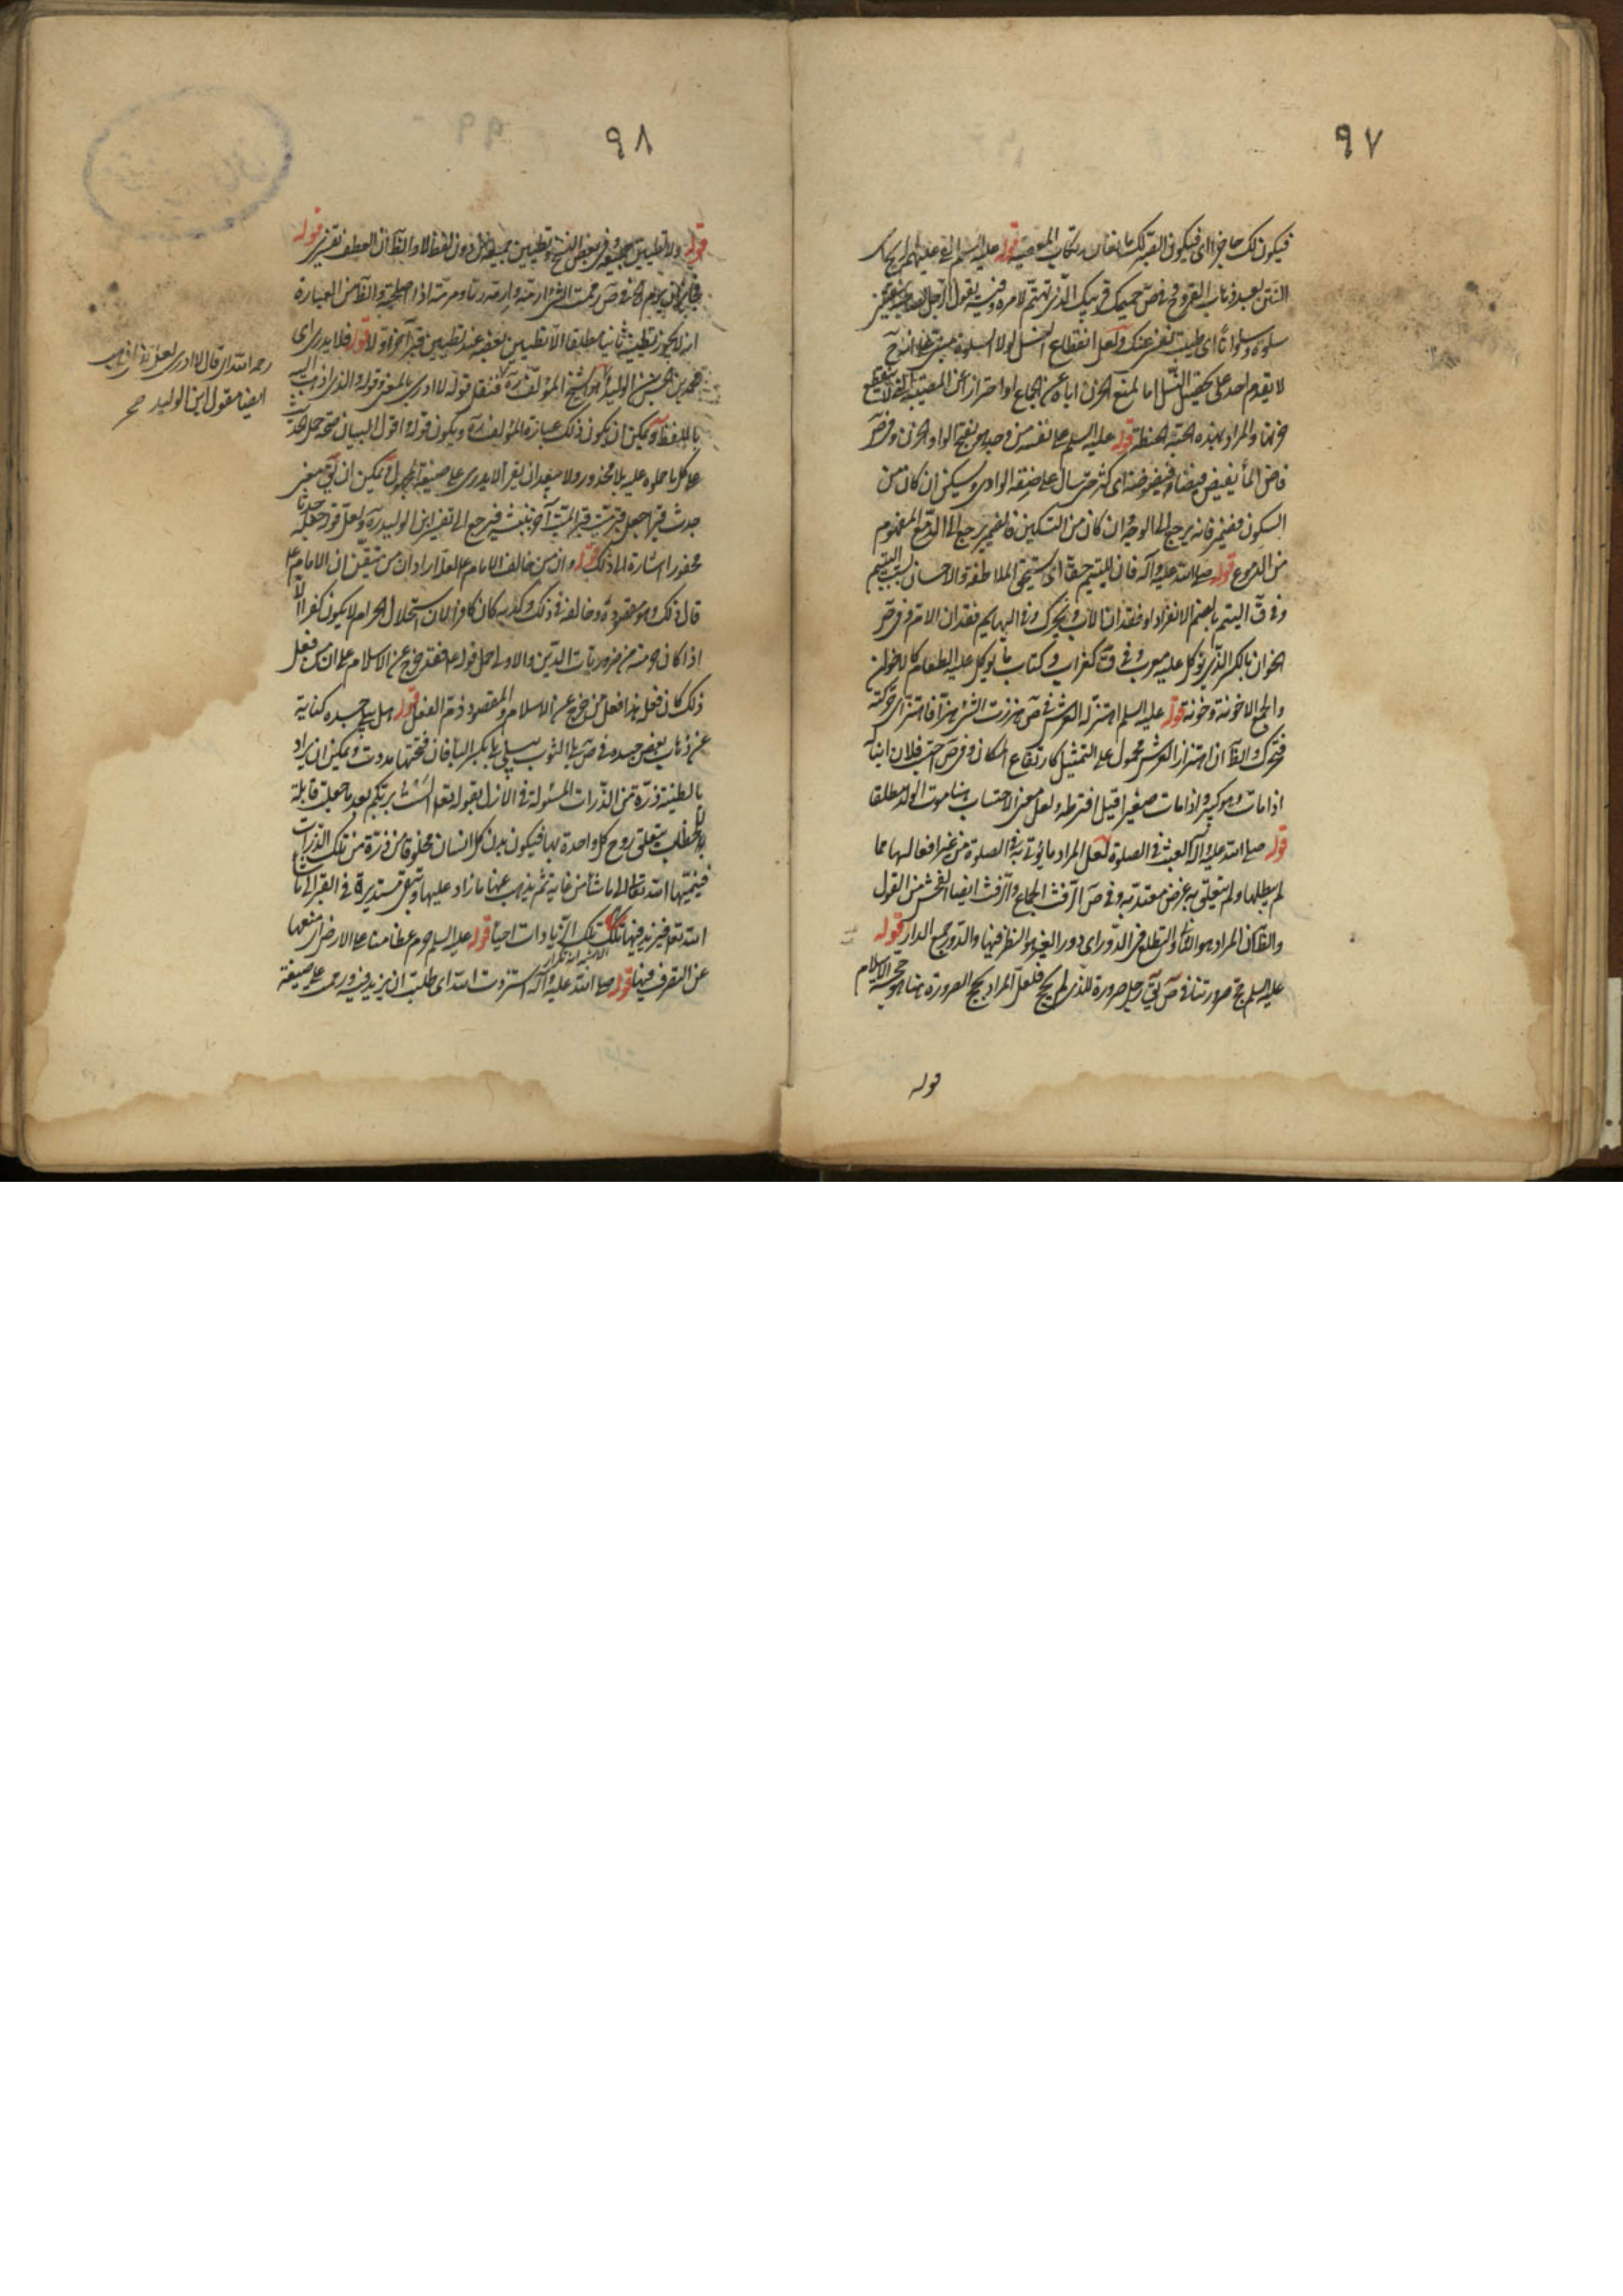 ٩٧
فيكون لك حاجزا اى فيكون القبر لك مانعا من ارتكاب المعصية قوله عليه السلم
النتن بعد ذهاب الفروح فى ص حميمك قريبك الذى تهتم لامره وفيه يقول الرجل لصاحبه
سلوة وسلوانا اى طيبت نفسى عنك ولعل انقطاع النسل لولا السلوة
لا يقدم احد على تحصيل النسل اما لمنع الحزن اياه عن الجماع او احترازا عن المصيبة
والمراد بهذه الحبة الحنطة قوله عليه السلم على نفسه من وجد هو بفتح الواو الحزن وفى ص
فاض الماء يفيض فيضا وفيضوضة اى كثر حتى سال على ضفة الوادى وسكن ان كان من
السكون فضميره يرجع الى الوجد وان كان من التسكين فالضمير يرجع الى الدمع المفهوم
من الدموع قوله صلى الله عليه وآله فان لليتيم حقا اى يستحق الملاطفة والاحسان لسبب اليتيم
وفى ق اليتم بالضم الانفراد او فقدان الاب ويحرك وفى البهايم فقدان الام وفى ص
الخوان بالكسر الذى يؤكل عليه معرب وفى ق كغراب وكتاب ما يؤكل عليه الطعام كالاخوان
والجمع الاخونة وخونة قوله عليه السلم اهتز له العرش فى ص هززت الشئ هزا فاهتز اى حركته
فتحرك والظ ان اهتزاز العرش محمول على التمثيل كارتفاع المكان وفى ص احتسب فلان ابنا
اذا مات وهو كبير واذا مات صغيرا قيل افترطه ولعل معنى الاحتساب هنا موت الولد مطلقا
قوله صلى الله عليه وآله العبث فى الصلوة لعل المراد ما يؤتى به فى الصلوة من غير افعالها مما
لم يبطلها ولم يتعلق به غرض معتد به وفى ص الرفث الجماع والرفث ايضا الفحش من القول
والظ ان المراد هو الثانى والتطلع فى الدور اى دور الغير هو النظر فيها والدور جمع الدار قوله
عليه السلم حج صرورتنا فى ص يق رجل صرورة للذى لم يحج فلعل المراد بحج الصرورة هنا هو حجة الاسلام
قوله
٩٨
قوله ولا تطيين وفى بعض النسخ وتطيين جميعه دون لفظ لا والظ ان العطف تفسير قوله
فجايز ان يرم الخ فى ص رممت الشئ ارمه وارمه رما ومرمة اذا اصلحته والظ من العبارة
انه لا يجوز تطيينه ثانيا مطلقا الا تطيين بعضه عند تطيين قبر آخر اولا قوله فلا يدرى اى
محمد بن الحسن بن الوليد او الشيخ المؤلف ره فنقل قوله لا ادرى بالمعنى وقوله والذى اذهب اليه
باللفظ ويمكن ان يكون ذلك عبارة المؤلف ره ويكون قوله اقول البيان صحة حمل الحديث
على كل ما حملوه عليه بلا محذور ولا يبعد ان يقرأ لا يدرى على صيغة المجهول ويمكن ان يق معنى
جدث قبرا جعل قبر ميت قبر الميت آخر بنبشه فيرجع الى تفسير ابن الوليد ره ولعل قوله جعله جدثا
محفورا اشارة الى ذلك قوله وان من خالف الامام على العل اراد ان من تيقن ان الامام ع
قال ذلك وهو مقصوده وخالفه فى ذلك وكذبه كان كافرا لان استحلال الحرام لا يكون كفرا الا
اذا كان حرمته من ضروريات الدين والاولى حمل قوله ع فقد خرج عن الاسلام على ان من فعل
ذلك كان فعل هذا فعل من خرج عن الاسلام والمقصود ذم الفعل قوله هل يبلى جسده كناية
عن ذهاب بعض جسده فى ص بلى الثوب يبلى بلى بكسر الباء فان فتحتها مددت ويمكن ان يراد
بالطينة ذرة من الذرات المسئولة فى الازل بقوله تعالى الست بربكم بعد ما جعلت قابلة
للخطاب بتعلق روح كل واحدة بها فيكون بدن كل انسان مخلوقا من ذرة من تلك الذرات
فينميها الله تعالى الى ما شاء من غاية ثم يذهب عنها ما زاد عليها وتبقى مستديرة فى القبر الى ما شاء
الله تعالى فيزيد فيها تلك الزيادات احيا قوله عليه السلم حرم عظامنا على الارض اى منعها
عن التصرف فيها قوله صلى الله عليه وآله استزدت الله اى طلبت ان يزيد فيه ورمى على صيغة
رحمه الله اى قال لا ادرى لعل
ايضا مقول ابن الوليد صح